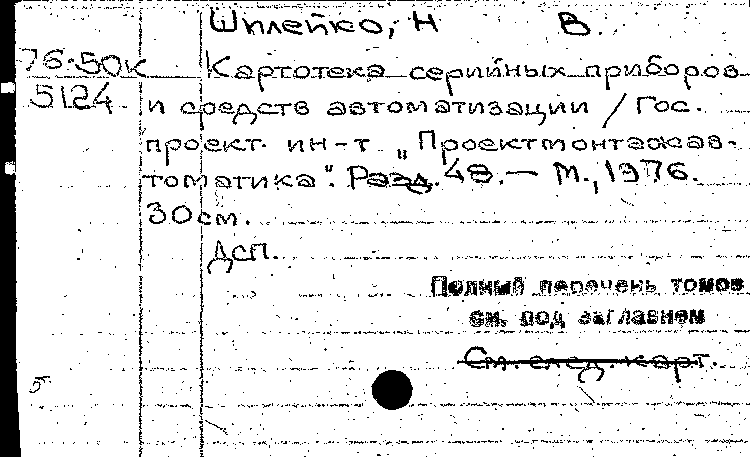 Шплейко, Н В.
76-50к Картотека серийных приборов
5124 и средств автоматизации / Гос.
проект. ин-т „Проектмонтажав-
томатика". Разд. 48. — М., 1976.
30 см.
ДСП.
Полный перечень томов
см. под заглавием
См. след. карт.
5